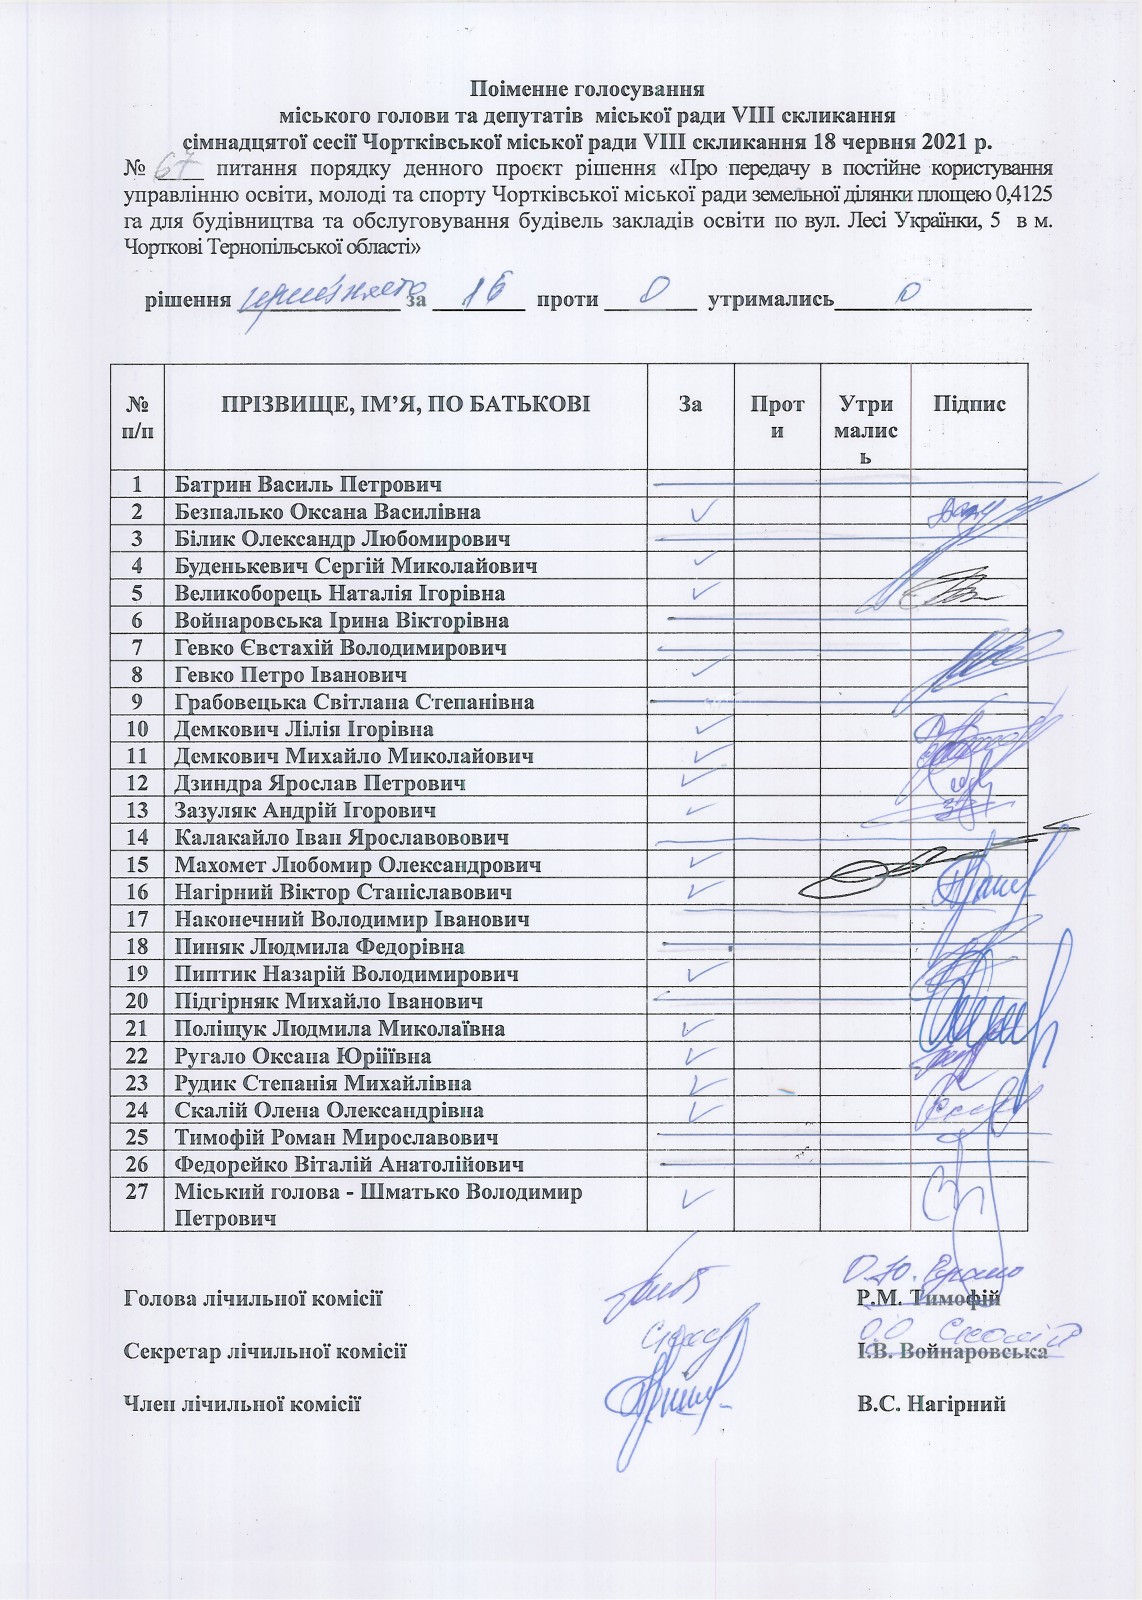 Поіменне голосування
міського голови та депутатів міської ради VIII скликання
сімнадцятої сесії Чортківської міської ради VIII скликання 18 червня 2021 р.
№ 67 питання порядку денного проєкт рішення «Про передачу в постійне користування
управлінню освіти, молоді та спорту Чортківської міської ради земельної ділянки площею 0,4125
га для будівництва та обслуговування будівель закладів освіти по вул. Лесі Українки, 5 в м.
Чорткові Тернопільської області»
рішення прийнято за 16 проти 0 утримались 0
№ п/п ПРІЗВИЩЕ, ІМ’Я, ПО БАТЬКОВІ За Проти УтрималисЬ Підпис
1 Батрин Василь Петрович
2 Безпалько Оксана Василівна
3 Білик Олександр Любомирович
4 Буденькевич Сергій Миколайович
5 Великоборець Наталія Ігорівна
6 Войнаровська Ірина Вікторівна
7 Гевко Євстахій Володимирович
8 Гевко Петро Іванович
9 Грабовецька Світлана Степанівна
10 Демкович Лілія Ігорівна
11 Демкович Михайло Миколайович
12 Дзиндра Ярослав Петрович
13 Зазуляк Андрій Ігорович
14 Калакайло Іван Ярославовович
15 Махомет Любомир Олександрович
16 Нагірний Віктор Станіславович
17 Наконечний Володимир Іванович
18 Пиняк Людмила Федорівна
19 Пиптик Назарій Володимирович
20 Підгірняк Михайло Іванович
21 Поліщук Людмила Миколаївна
22 Ругало Оксана Юріїївна
23 Рудик Степанія Михайлівна
24 Скалій Олена Олександрівна
25 Тимофій Роман Мирославович
26 Федорейко Віталій Анатолійович
27 Міський голова - Шматько Володимир
Петрович
О.Ю. Ругало
Голова лічильної комісії Р.М. Тимофій
О.О Скалій
Секретар лічильної комісії І.В. Войнаровська
Член лічильної комісії В.С. Нагірний